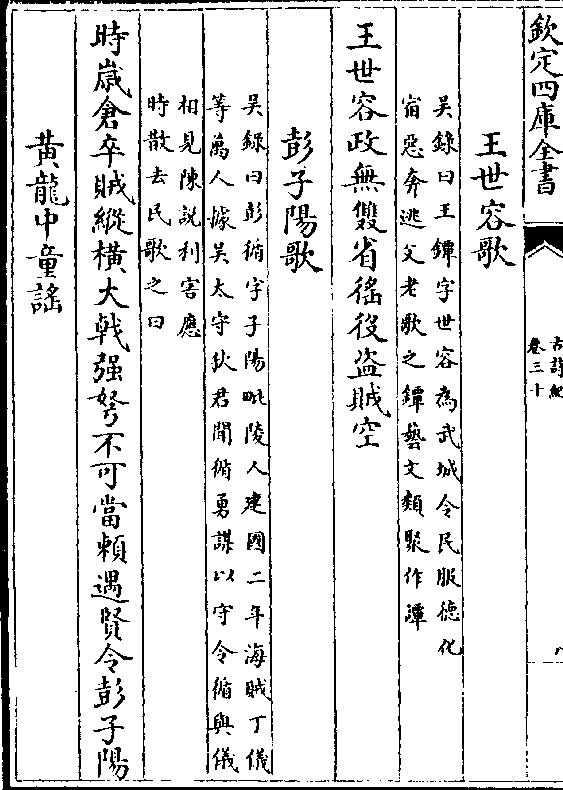 欽定四庫全書
古詩紀
卷三十
王世容歌
吳録曰王鐔字世容為武城令民服德化
宿惡奔逃父老歌之鐔藝文類聚作潭
王世容政無雙省徭役盗賊空
彭子陽歌
吳録曰彭循字子陽毗陵人建國二年海賊丁儀
等萬人據吳太守秋君聞循勇謀以守令循與儀
相見陳説利害應
時散去民歌之曰
時嵗倉卒賊縱橫大戟强弩不可當頼遇賢令彭子陽
黄龍中童謡